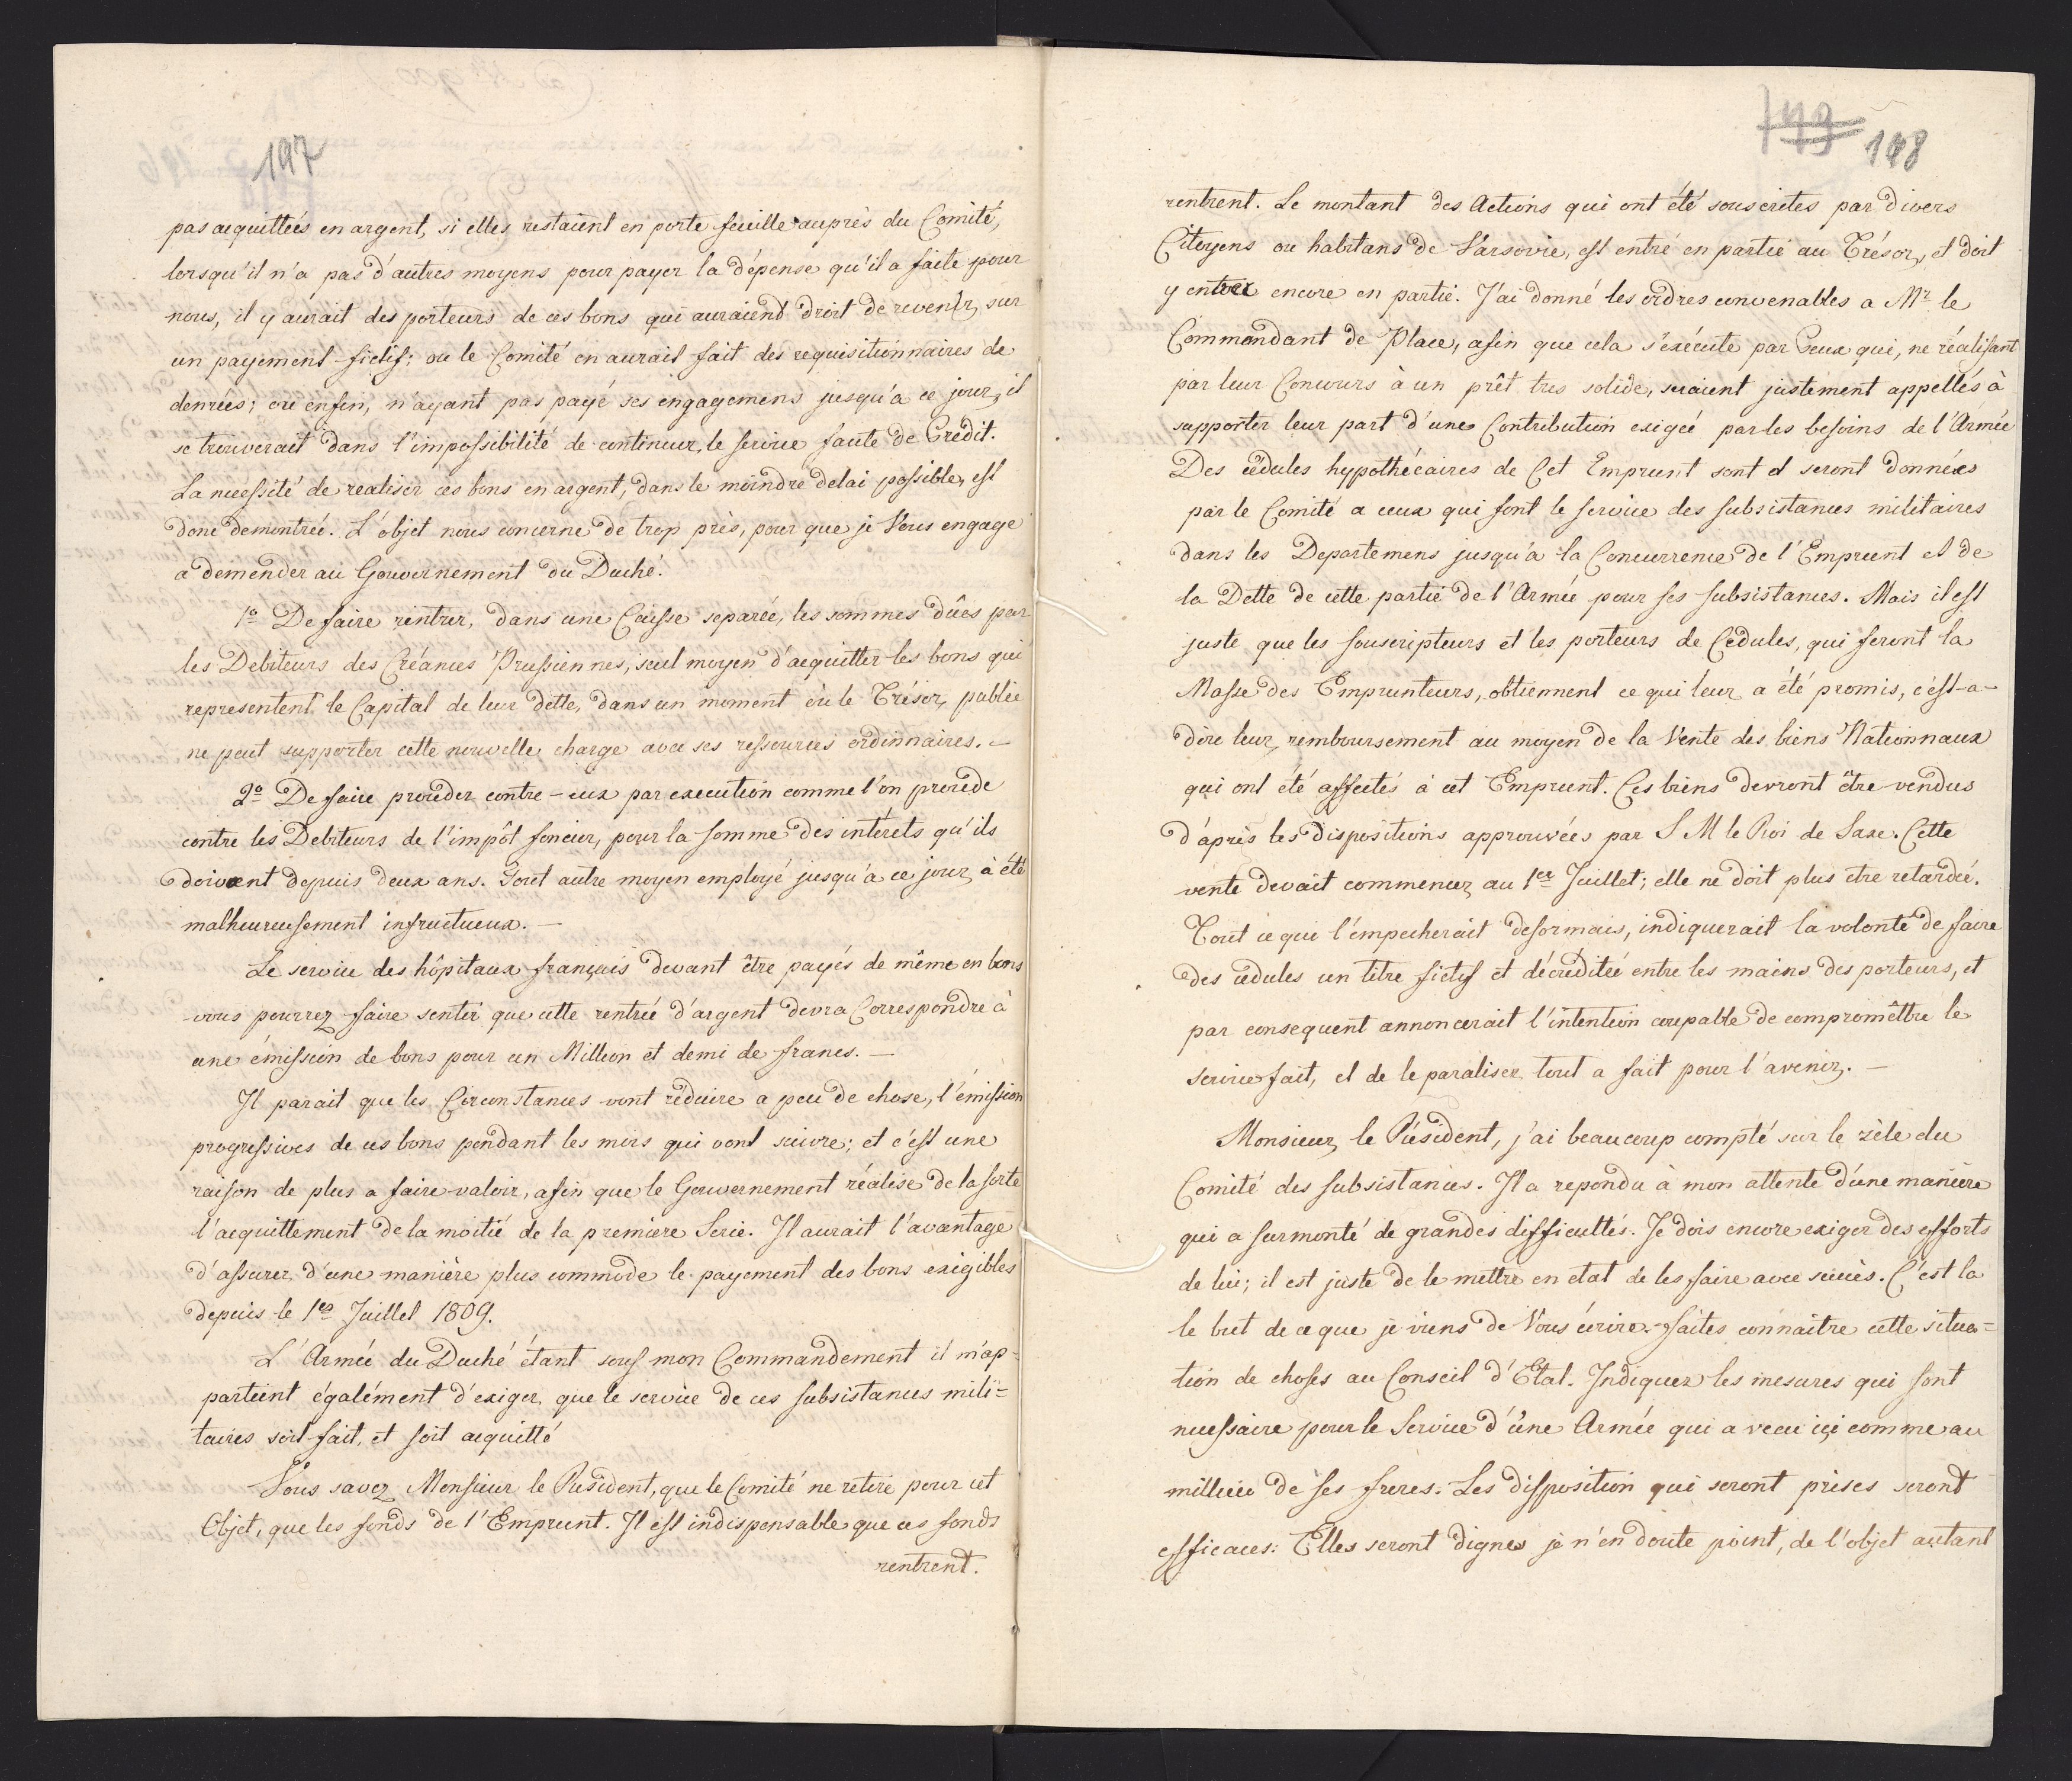 197
pas acquittées en argent, si elles restaient en porte feuille auprès du Comité,
lorsqu'il n'a pas d'autres moyens pour payer la dépense qu'il a faite pour
nous, il y aurait des porteurs de ces bons qui auraiend droit de revenir, sur
un payement fictif; ou le Comité en aurait fait des requisitionnaires de
denrées; ou enfin, n'ayant pas payé ses engagemens jusqu'à ce jour, il
se trouverait dans l'impossibilité de continuer, le service faute de Credit.
La necessité de realiser ces bons en argent, dans le moindre delai possible, est
donc demontrée. L'objet nous concerne de trop près, pour que je Vous engage
a demender au Gouvernement du Duché.
1o De faire rentrer, dans une Caisse separée, les sommes dûes par
les Debiteurs des Créances Prussiennes, seul moyen d'acquitter les bons qui
representent le Capital de leur dette, dans un moment où le Trésor, public
ne peut supporter cette nouvelle charge avec ses ressources ordinnaires. —
2o De faire proceder contre-eux par execution comme l'on procede
contre les Debiteurs de l'impôt foncier, pour la somme des intérets qu'ils
doivent depuis deux ans. Tout autre moyen employé jusqu'à ce jour, à été
malheureusement infructueux. —
Le service des hôpitaux français devant être payés de même en bons
vous pourrez faire sentir que cette rentrée d'argent devra Correspondre à
une émission de bons pour un Million et demi de francs. —
Il parait que les Circonstances vont réduire a peu de chose, l'émission
progressives de ces bons pendant les mois qui vont suivre; et c'est une
raison de plus a faire valoir, afin que le Gouvernement réalise de la sorte
l'acquittement de la moitié de la premiere Serie. Il aurait l'avantage
d'assurer d'une manière plus commode le payement des bons exigibles
depuis le 1er Juillet 1809.
L'Armée du Duché étant sous mon Commandement il m'ap=
partient également d'exiger, que le service de ces subsistances mili=
taires soit fait, et soit acquitté
Vous savez Monsieur le President, que le Comité ne retire pour cet
Objet, que les fonds de l'Emprunt. Il est indispensable que ces fonds
rentrent.
198
rentrent. Le montant des Actions qui ont été souscrites par divers
Citoyens ou habitans de Varsovie, est entré en partie au Trésor, et doit
y entrer encore en partie. J'ai donné les ordres convenables a Mr le
Commandant de Place, afin que cela s'exécute par Ceux qui, ne réalisant
par leur Concours à un prêt tres solide, seraient justement appellés à
supporter leur part d'une Contribution exigée par les besoins de l'Armée
Des cedules hypothécaires de Cet Emprunt sont et seront données
par le Comité a ceux qui font le service des subsistances militaires
dans les Departemens jusqu'à la Concurrence de l'Emprunt et de
la Dette de cette partie de l'Armée pour ses subsistances. Mais il est
juste que les souscripteurs et les porteurs de Cedules, qui feront la
Masse des Emprunteurs, obtiennent ce qui leur a été promis, c'est-a-
dire leur, remboursement au moyen de la Vente des biens Nationnaux
qui ont été affectés à cet Emprunt. Ces biens devront être vendus
d'après les dispositions approuvées par S M le Roi de Saxe. Cette
vente devait commencer au 1er Juillet; elle ne doit plus etre retardée.
Tout ce qui l'empecherait desormais, indiquerait la volonté de faire
des cedules un titre fictif et décredité entre les mains des porteurs, et
par consequent annoncerait l'intention coupable de compromêttre le
service fait, et de le paraliser tout a fait pour l'avenir. —
Monsieur, le Président, j'ai beaucoup compté sur le zèle du
Comité des subsistances. Il a repondu à mon attente d'une manière
qui a surmonté de grandes difficultés. Je dois encore exiger des efforts
de lui; il est juste de le mettre en etat de les faire avec succès. C'est la
le but de ce que je viens de Vous écrire. Faites connaitre cette situa=
tion de choses au Conseil d'Etat. Indiquez les mesures qui sont
necessaire pour le Service d'une Armée qui a vecu içi comme au
millieu de ses freres. Les disposition qui seront prises seront
efficaces: Elles seront dignes je n'en doute point, de l'objet autant